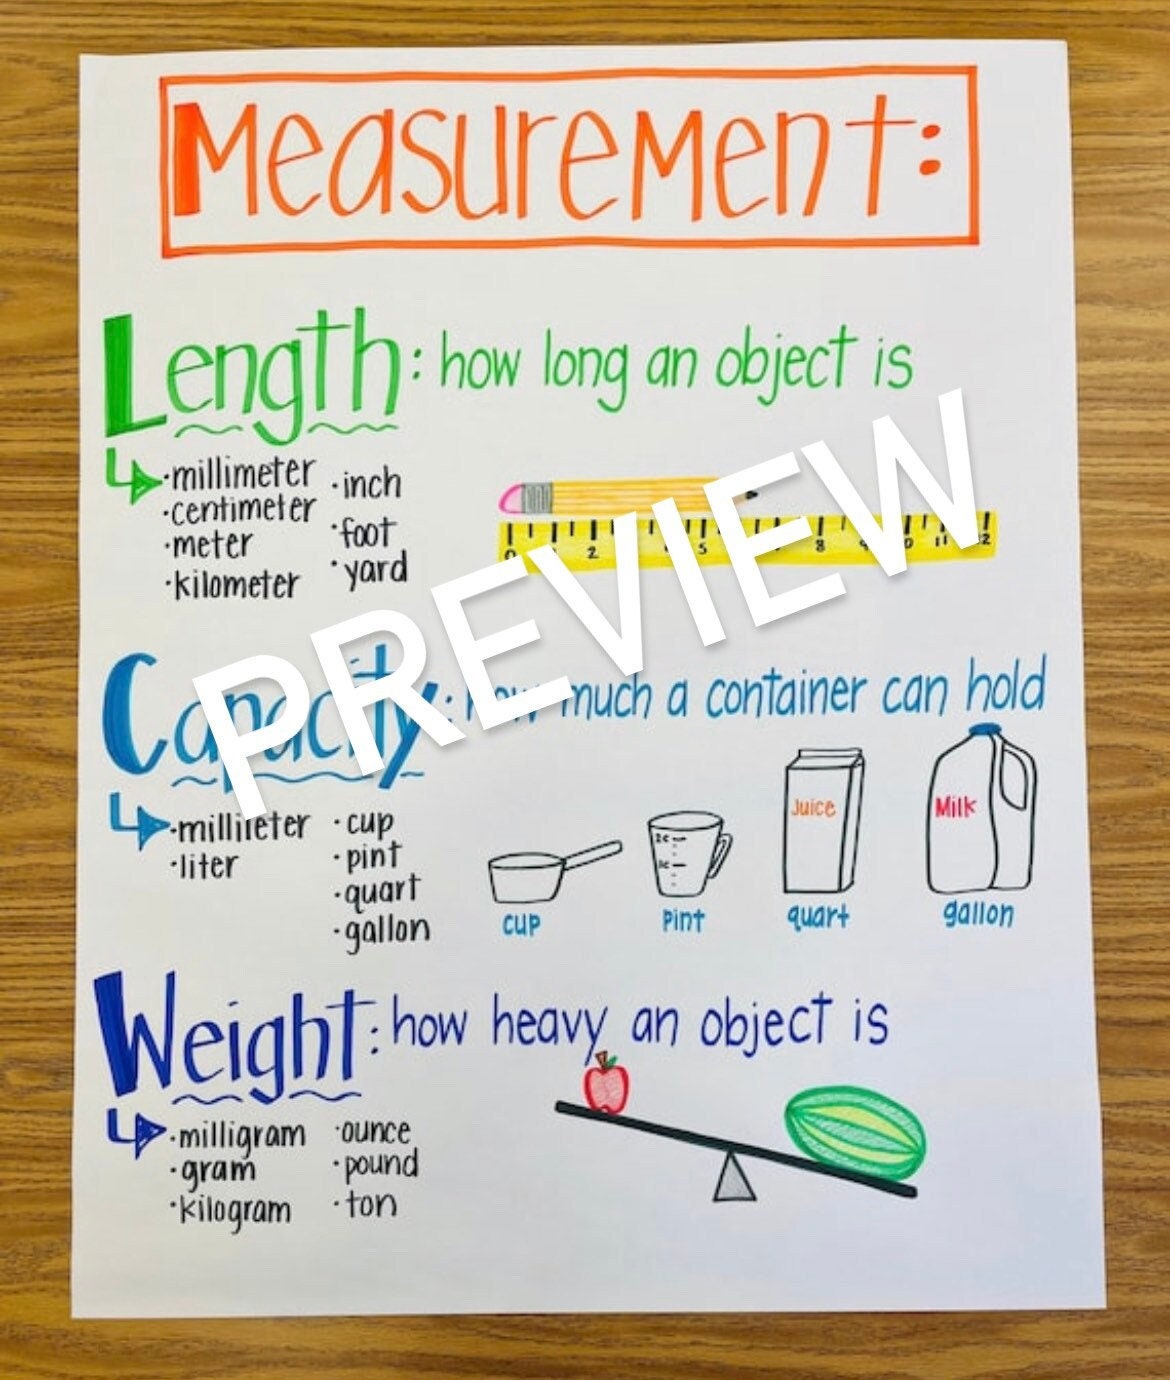 Measurement:
Length: how long an object is
·millimeter
·centimeter
·meter
·kilometer
·inch
·foot
·yard
2 5 8 11
PREVIEW
Capacity: how much a container can hold
·millileter
·liter
·cup
·pint
·quart
·gallon
Juice
Milk
cup
pint
quart
gallon
Weight: how heavy an object is
·milligram
·gram
·kilogram
·ounce
·pound
·ton